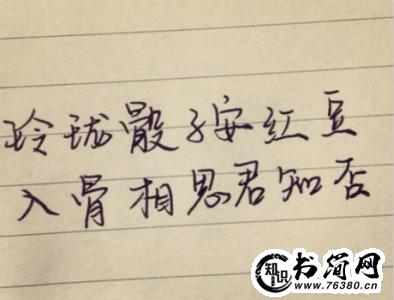 玲珑骰子安红豆
入骨相思君知否
知识
书简网
www.76380.cn